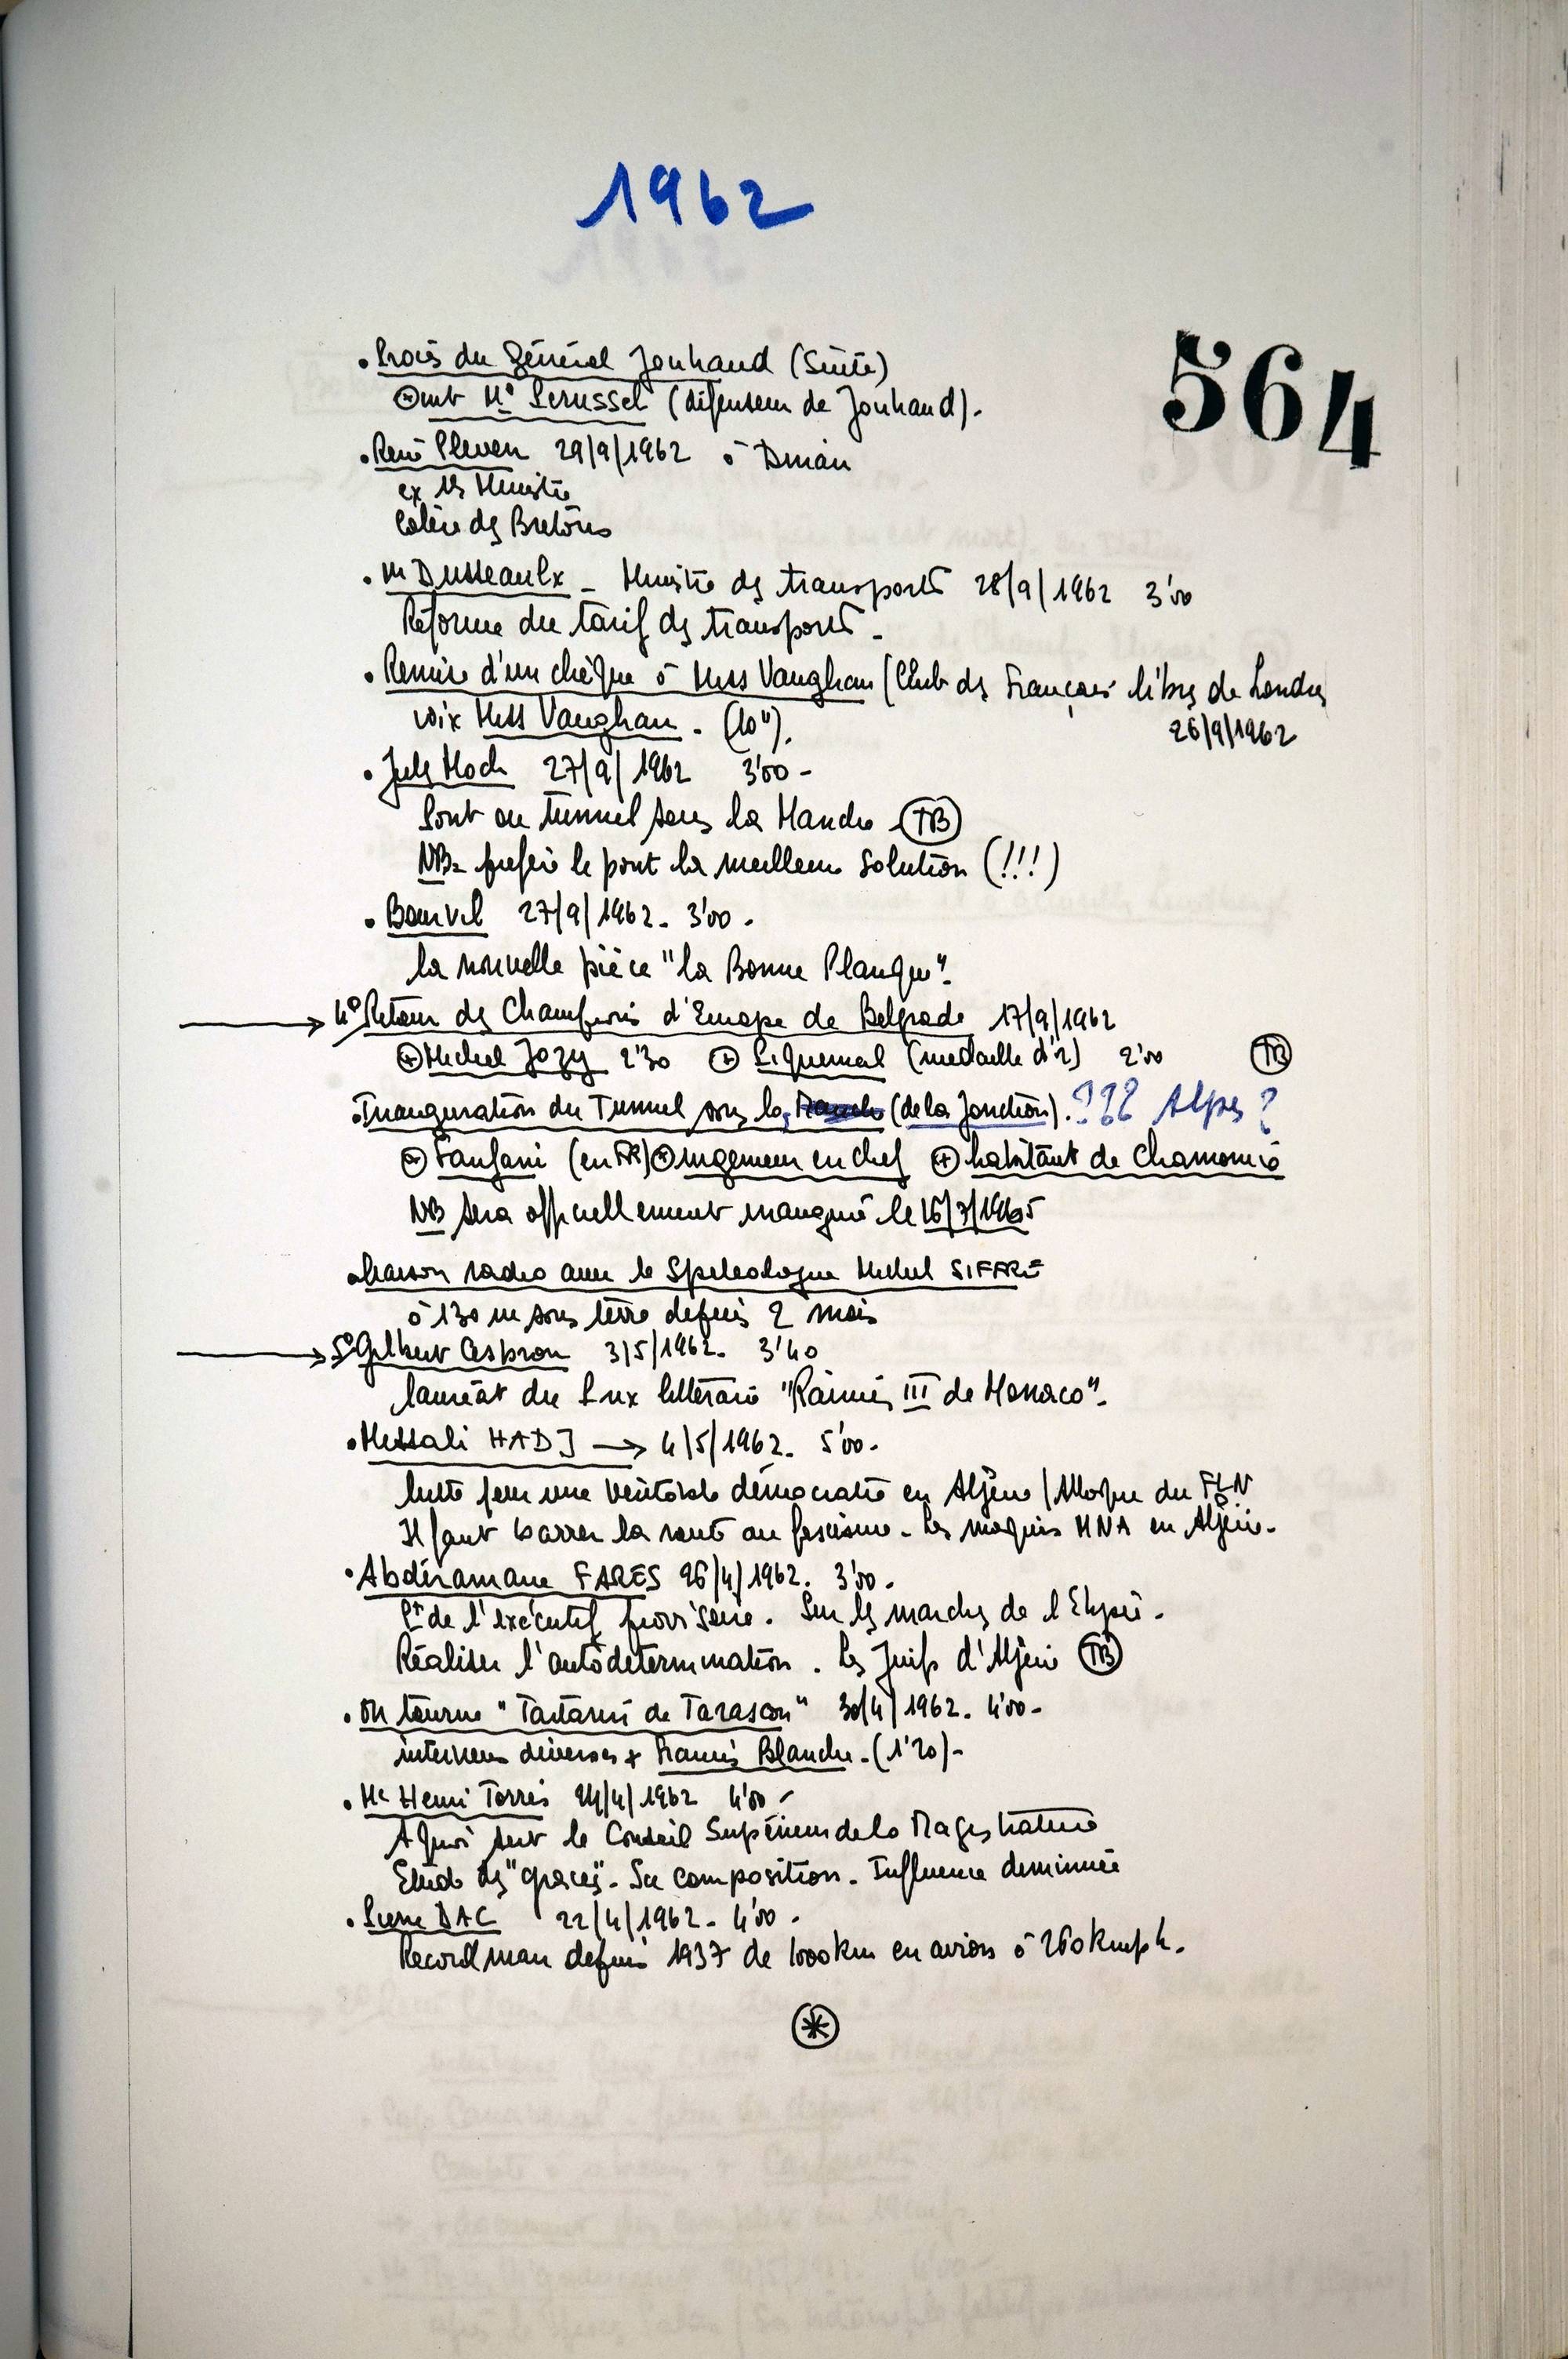 1962
564
• Procès du Général Jouhaud (Suite)
⊕ int Me Perussel (défenseur de Jouhaud).
• René Pleven 29/9/1962 à Dinan
ex 1er Ministre
Colère des Bretons
• M Dusseaulx - Ministre des transports 28/9/1962 3'00
Réforme du tarif des transports -
• Remise d'un chèque à Miss Vaughan (Club des Français libres de Londres
voix Miss Vaughan - (10"). 26/9/1962
• Jules Moch 27/9/1962 3'00 -
Pont ou tunnel sous la Manche - TB
NB= préfère le pont la meilleure solution (!!!)
• Bourvil 27/9/1962 - 3'00 -
la nouvelle pièce "la Bonne Planque" -
→ 4° Retour des Championnats d'Europe de Belgrade 17/9/1962
⊕ Michel Jazy 2'30 ⊕ Piquemal (medaille d'r) 2'00 TB
• Inauguration du Tunnel sous la Manche (de la Jonction). ??? Alpes ?
⊕ Fanfani (en FR) ⊕ ingenieur en chef ⊕ habitant de Chamonix
NB sera officiellement inauguré le 16/7/1965
• liaison radio avec le Spéléologue Michel SIFFRE
à 130 m sous terre depuis 2 mois
→ 5° Gilbert Cesbron 3/5/1962 - 3'40
lauréat du Prix littéraire "Rainier III de Monaco" -
• Messali HADJ → 4/5/1962 - 5'00 -
lutte pour une véritable démocratie en Algérie / Attaque du FLN
Il faut barrer la route au fascisme - les maquis MNA en Algérie -
• Abdéramane FARES 26/4/1962. 3'00 -
Pt de l'exécutif provisoire. Sur les marches de l'Elysée -
Réaliser l'autodétermination. les Juifs d'Algérie TB
• On tourne "Tartarin de Tarascon" 30/4/1962. 4'00 -
interviews diverses + Francis Blanche - (1'20) -
• Me Henri Torrès 24/4/1962 4'00 -
A quoi sert le Conseil Supérieur de la Magistrature
Etude des "graces" - Sa composition - Influence diminuée
• Pierre DAC 22/4/1962 - 4'00 -
Recordman depuis 1937 de 1000 km en avion à 260 kmph.